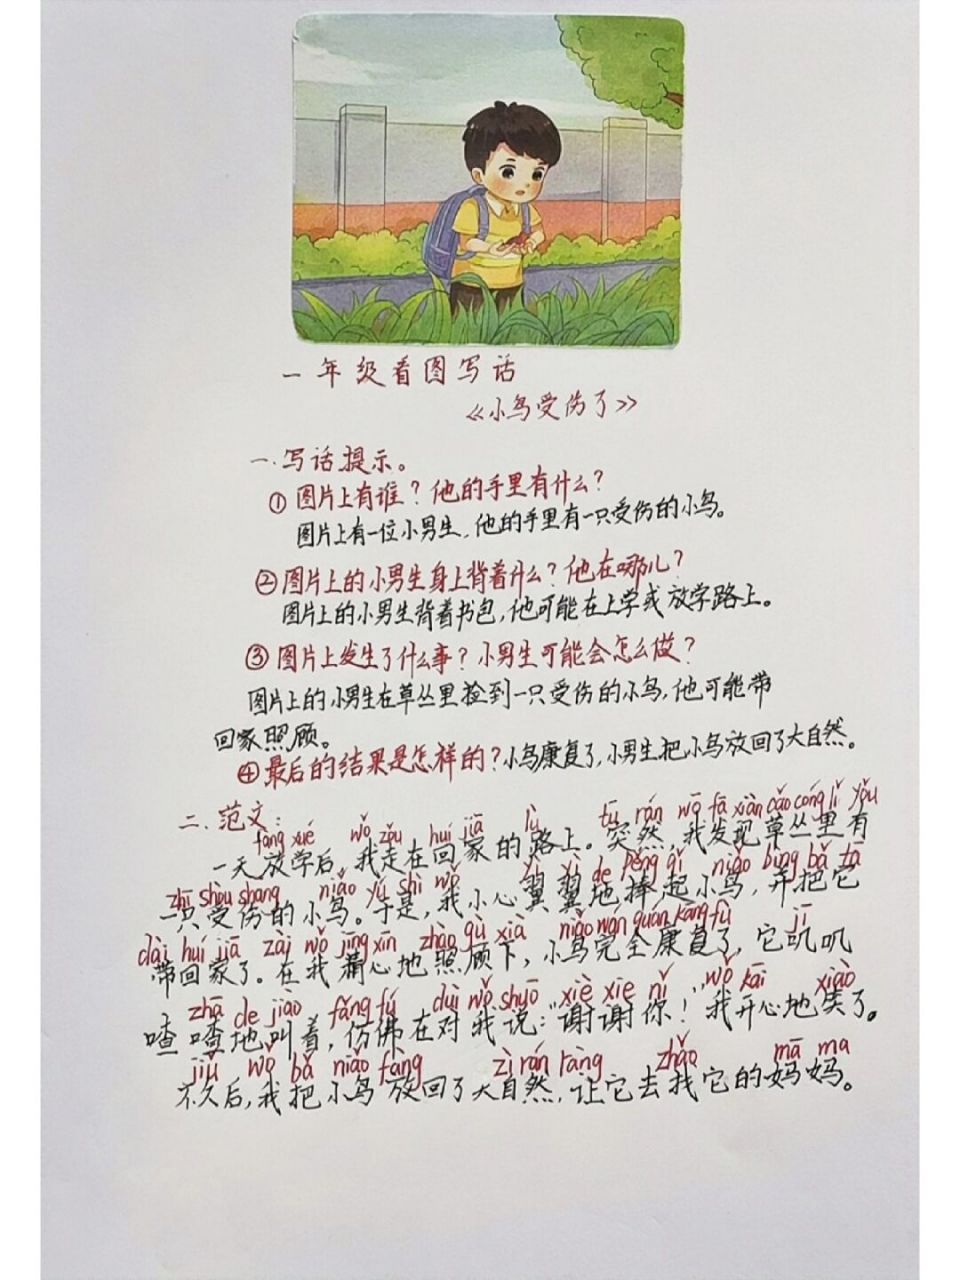 一年级看图写话
《小鸟受伤了》
一.写话提示。
①图片上有谁?他的手里有什么?
图片上有一位小男生,他的手里有一只受伤的小鸟。
②图片上的小男生身上背着什么?他在哪儿?
图片上的小男生背着书包,他可能在上学或放学路上。
③图片上发生了什么事?小男生可能会怎么做?
图片上的小男生在草丛里捡到一只受伤的小鸟,他可能带
回家照顾。
④最后的结果是怎样的?小鸟康复了,小男生把小鸟放回了大自然。
二.范文:
fàng xué wǒ zǒu huí jiā lù tū rán wǒ fā xiàn cǎo cóng lǐ yǒu
一天放学后,我走在回家的路上。突然,我发现草丛里有
zhī shòu shang niǎo yú shì wǒ yì yì de pěng qǐ niǎo bìng bǎ tā
一只受伤的小鸟。于是,我小心翼翼地捧起小鸟,并把它
dài huí jiā zài wǒ jīng xīn zhào gù xià niǎo wán quán kāng fù jī
带回家了。在我精心地照顾下,小鸟完全康复了,它叽叽
zhā de jiào fǎng fú duì wǒ shuō xiè xie nǐ wǒ kāi xiào
喳喳地叫着,仿佛在对我说:“谢谢你!”我开心地笑了。
jiǔ wǒ bǎ niǎo fàng zì rán ràng zhǎo mā ma
不久后,我把小鸟放回了大自然,让它去找它的妈妈。